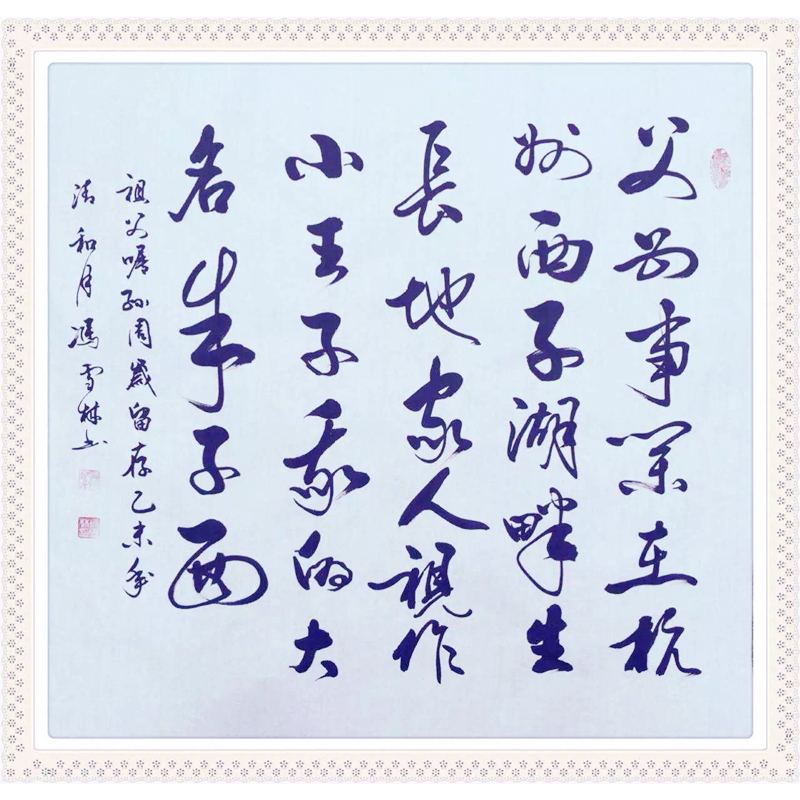 父母事業在杭
州西子湖畔生
長地家人視作
小王子我的大
名朱子西
祖父嘱孙周歲留存乙未年
清和月馮雪林书